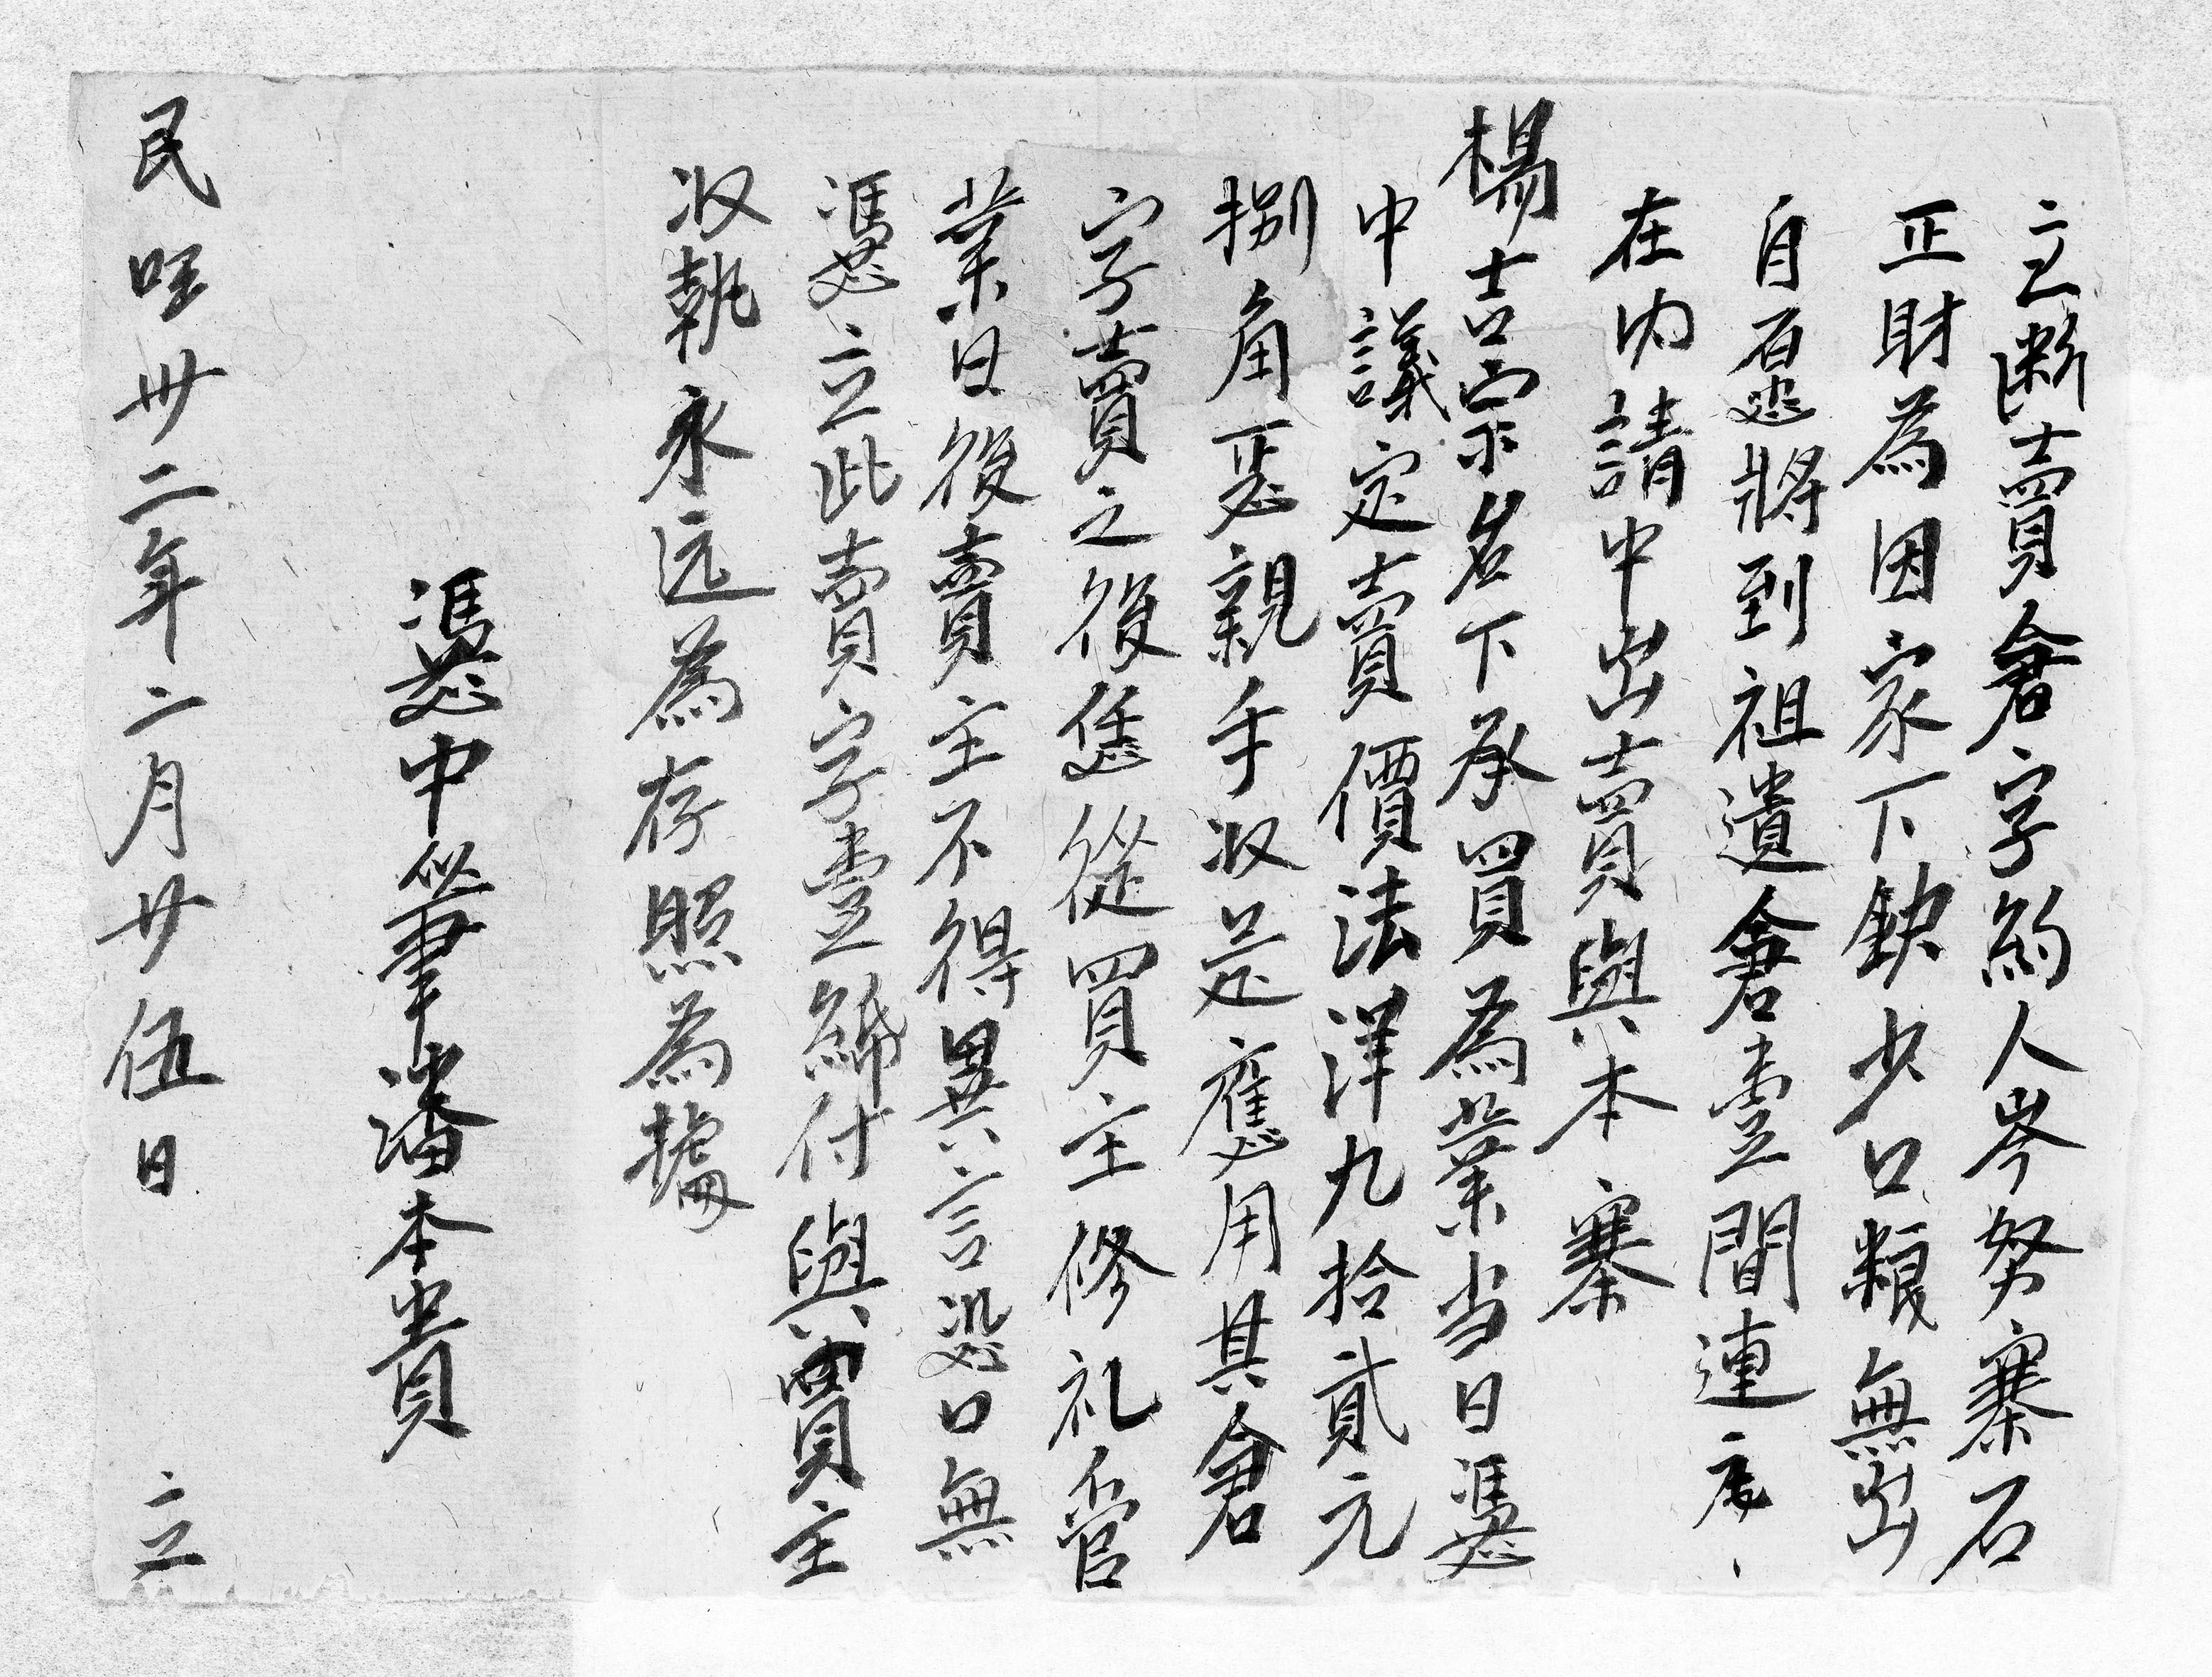 立断賣倉字約人岑努寨石
正財為因家下缺少口粮無出
自愿將到祖遺倉壹間連
在内請中出賣與本寨
楊吉宗名下承買為業当日憑
中議定賣價法洋九拾貳元
捌角正親手收足應用其倉
字賣之後恁從買主修礼管
業日後賣主不得異言恐口無
憑立此賣字壹紙付與買主
收執永远為存照為據
憑中筆潘本貴
民国卅二年二月廿伍日 立